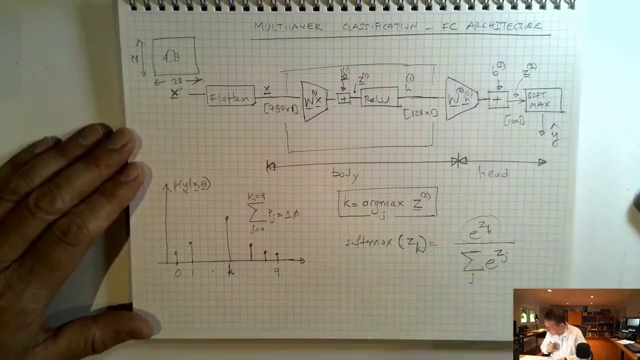 MULTILAYER CLASSIFICATION - FC ARCHITECTURE
28
28
x
Flatten
x
[784x1]
W⁽¹⁾x
b⁽¹⁾
+
z⁽¹⁾
ReLU
h⁽¹⁾
[128x1]
W⁽²⁾h
b⁽²⁾
+
z⁽²⁾
[10x1]
SOFT
MAX
ŷ
body
head
K=9
∑ p_j = 1.0
j=0
0 1 . k 9
k = argmax z⁽²⁾
j
softmax (z_k) = e^{z_k}
∑ e^{z_j}
j